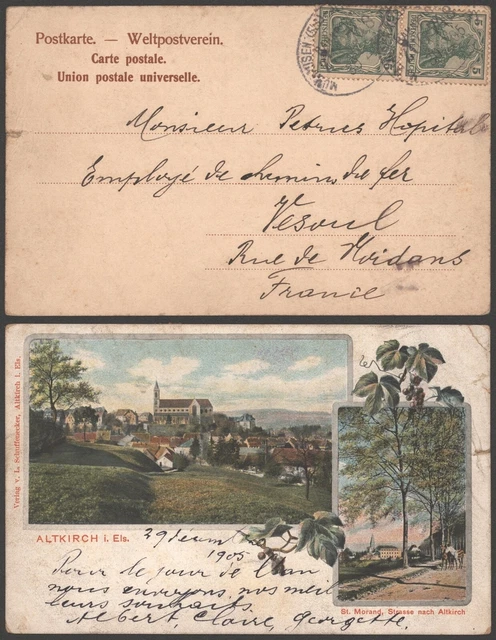 Postkarte. — Weltpostverein.
Carte postale.
Union postale universelle.
5
5
Monsieur Petrus Hopital
Employé de chemins de fer
Vesoul
Rue de Noidans
France
Verlag v. L. Schiffenecker, Altkirch i. Els.
ALTKIRCH i. Els.
29 décembre
1905
Pour le jour de l'an
nous envoyons nos meil
leurs souhaits.
Albert, Claire, Georgette.
St. Morand, Strasse nach Altkirch